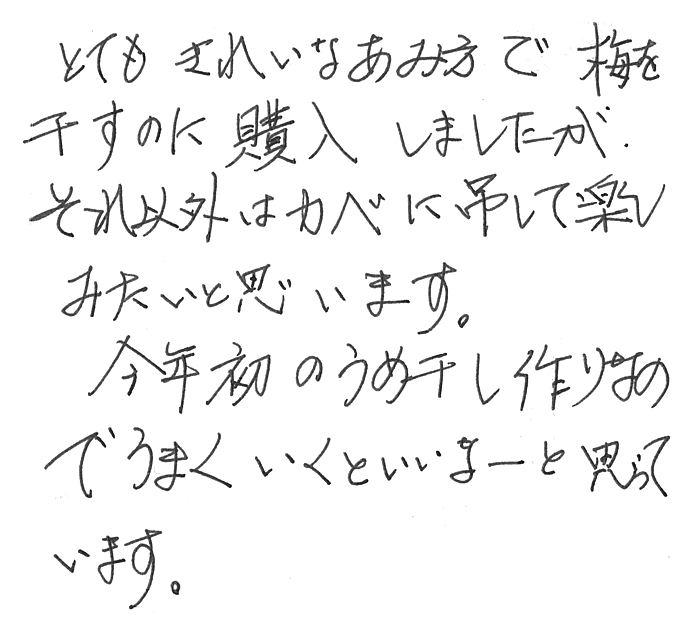 とてもきれいなあみ方で梅を
干すのに購入しましたが、
それ以外はカベに吊して楽し
みたいと思います。
今年初のうめ干し作りなの
でうまくいくといいなーと思って
います。